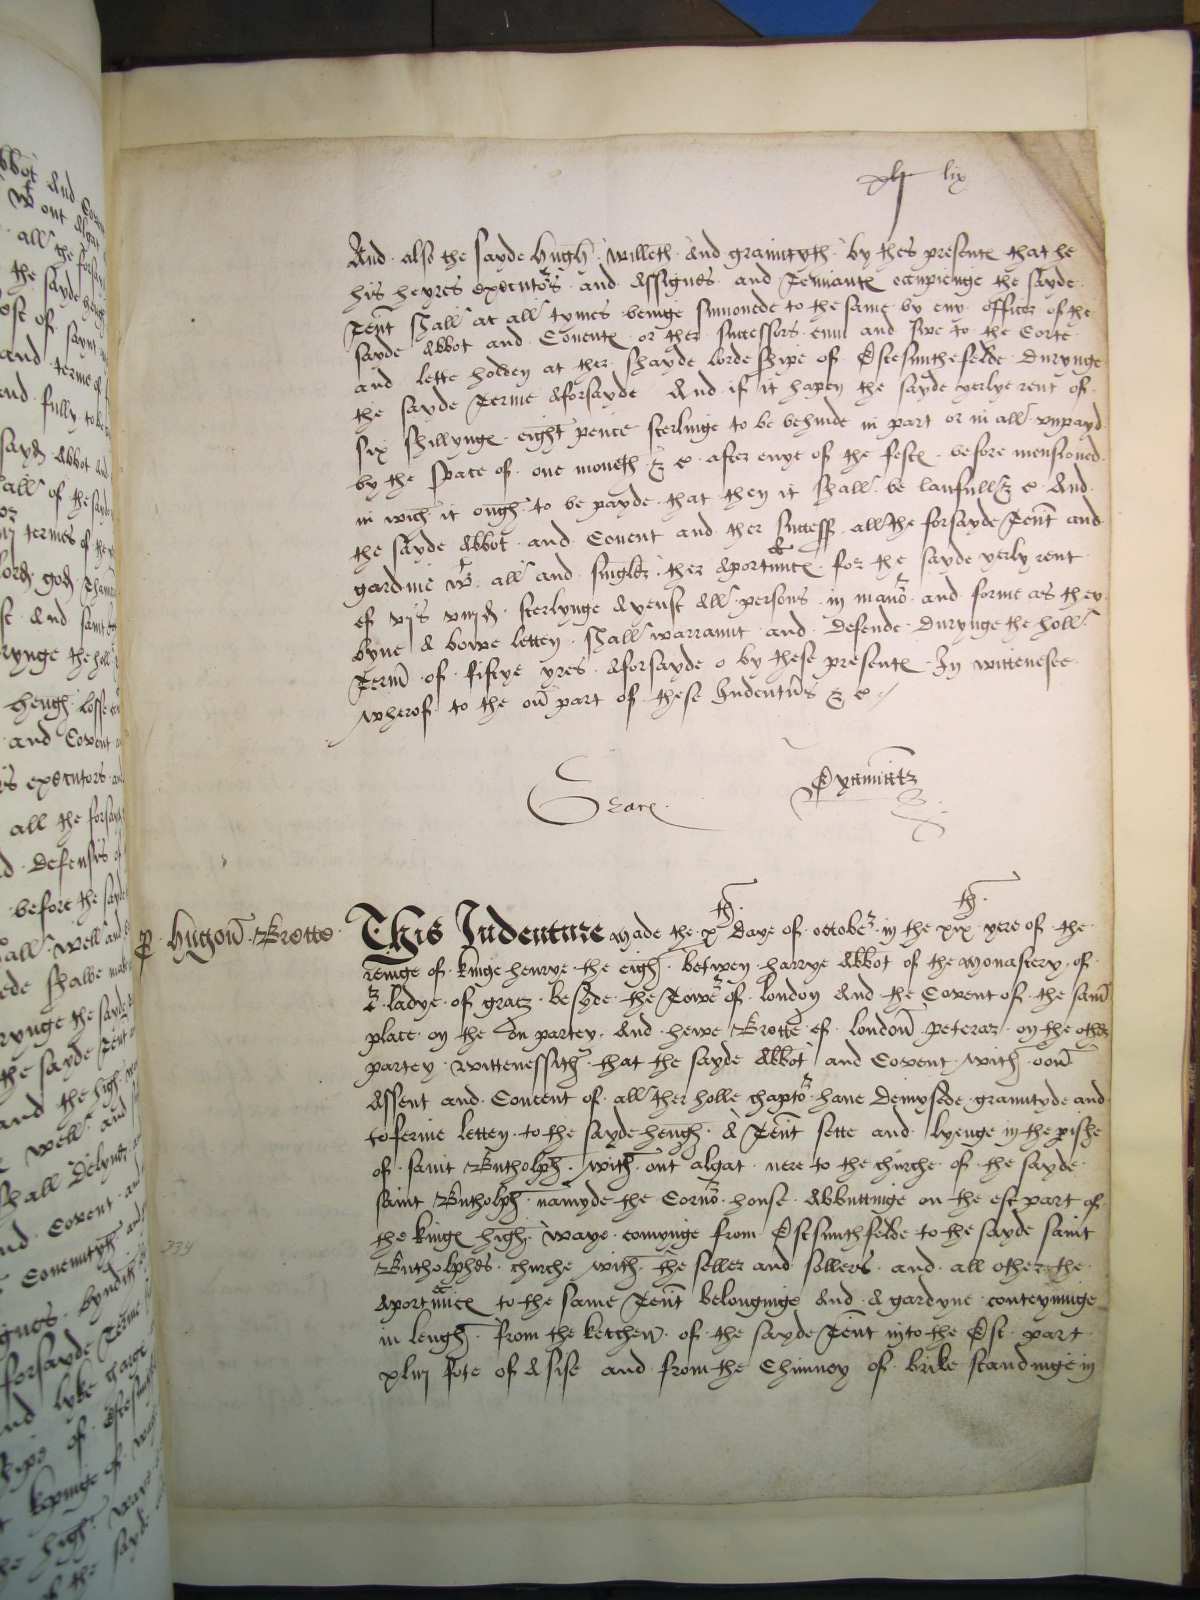 lix
And also the sayde Hugh willeth And grauntyth by thes present that he
his heyres executors and Assignes and Tennant occupienge the sayde
Tent shall at all tymes beinge sumonede to the same by eny officer of the
sayde Abbot and Covent or ther successors cum and sue to the Corte
and lette holden at ther shayde lordeshipe of Estesmithefelde Durynge
the sayde Terme Aforsayde And if it hapen the sayde yerlye rent of
six shillyng eight pence sterlinge to be behinde in part or in all unpayd
by the space of one moneth & c after enye of the fest before mensioned
in wich it ough to be payde that then it shall be laufull & c And
the sayde Abbot and Covent and ther success all the forsayde Tent and
gardine wt all and singler ther Aportinnc for the sayde yerly rent
of vjs viijd sterlynge Ayenst All persons in maner and forme as they
byne A bowe letten shall warrannt and Defende Durynge the holl
Term of fiftye yres Aforsayde by these present In wittenesse
wherof to the on part of these Indentures & c
Examinatr
p Hugon Brotte
This Indenture made the xth Daye of october in the xixth yere of the
reinge of kinge henrye the eigh betwen harrye Abbot of the Monastery of
ladye of grace besyde the Towr of london And the Covent of the sam
place on the on partey And hewe Brotte of london on the other
partey wittenessith that the sayde Abbot and Covent with oon
Assent and Concent of all ther holle chaptor have Demysede grauntyde and
to ferme letten to the sayde heugh A Tent sette and lyenge in the pishe
of saint Butholph with out algat nere to the churche of the sayde
saint Butholph namyde the Corner house Abbuttinge on the est part of
the king high waye comynge from Estsmithfelde to the sayde saint
Butholphes churche with the seller and sollers and all other the
Aportinnc to the same Tent belonginge And A gardyne conteyninge
in lengh from the ketchen of the sayde Tent into the Est part
xliij fote of Assise and from the Chimney of brike standinge in
339